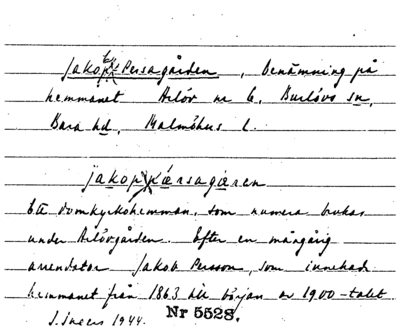 Jakop Persagården, benämning på
hemmanet Arlöv nr 6, Burlövs sn,
Bara hd, Malmöhus l.
jakop kærsagåren
Ett domkyrkohemman, som numera brukas
under Arlövgården. Efter en mångårig
arrendator Jakob Persson, som innehade
hemmanet från 1863 till början av 1900-talet
1944.
Nr 5528.